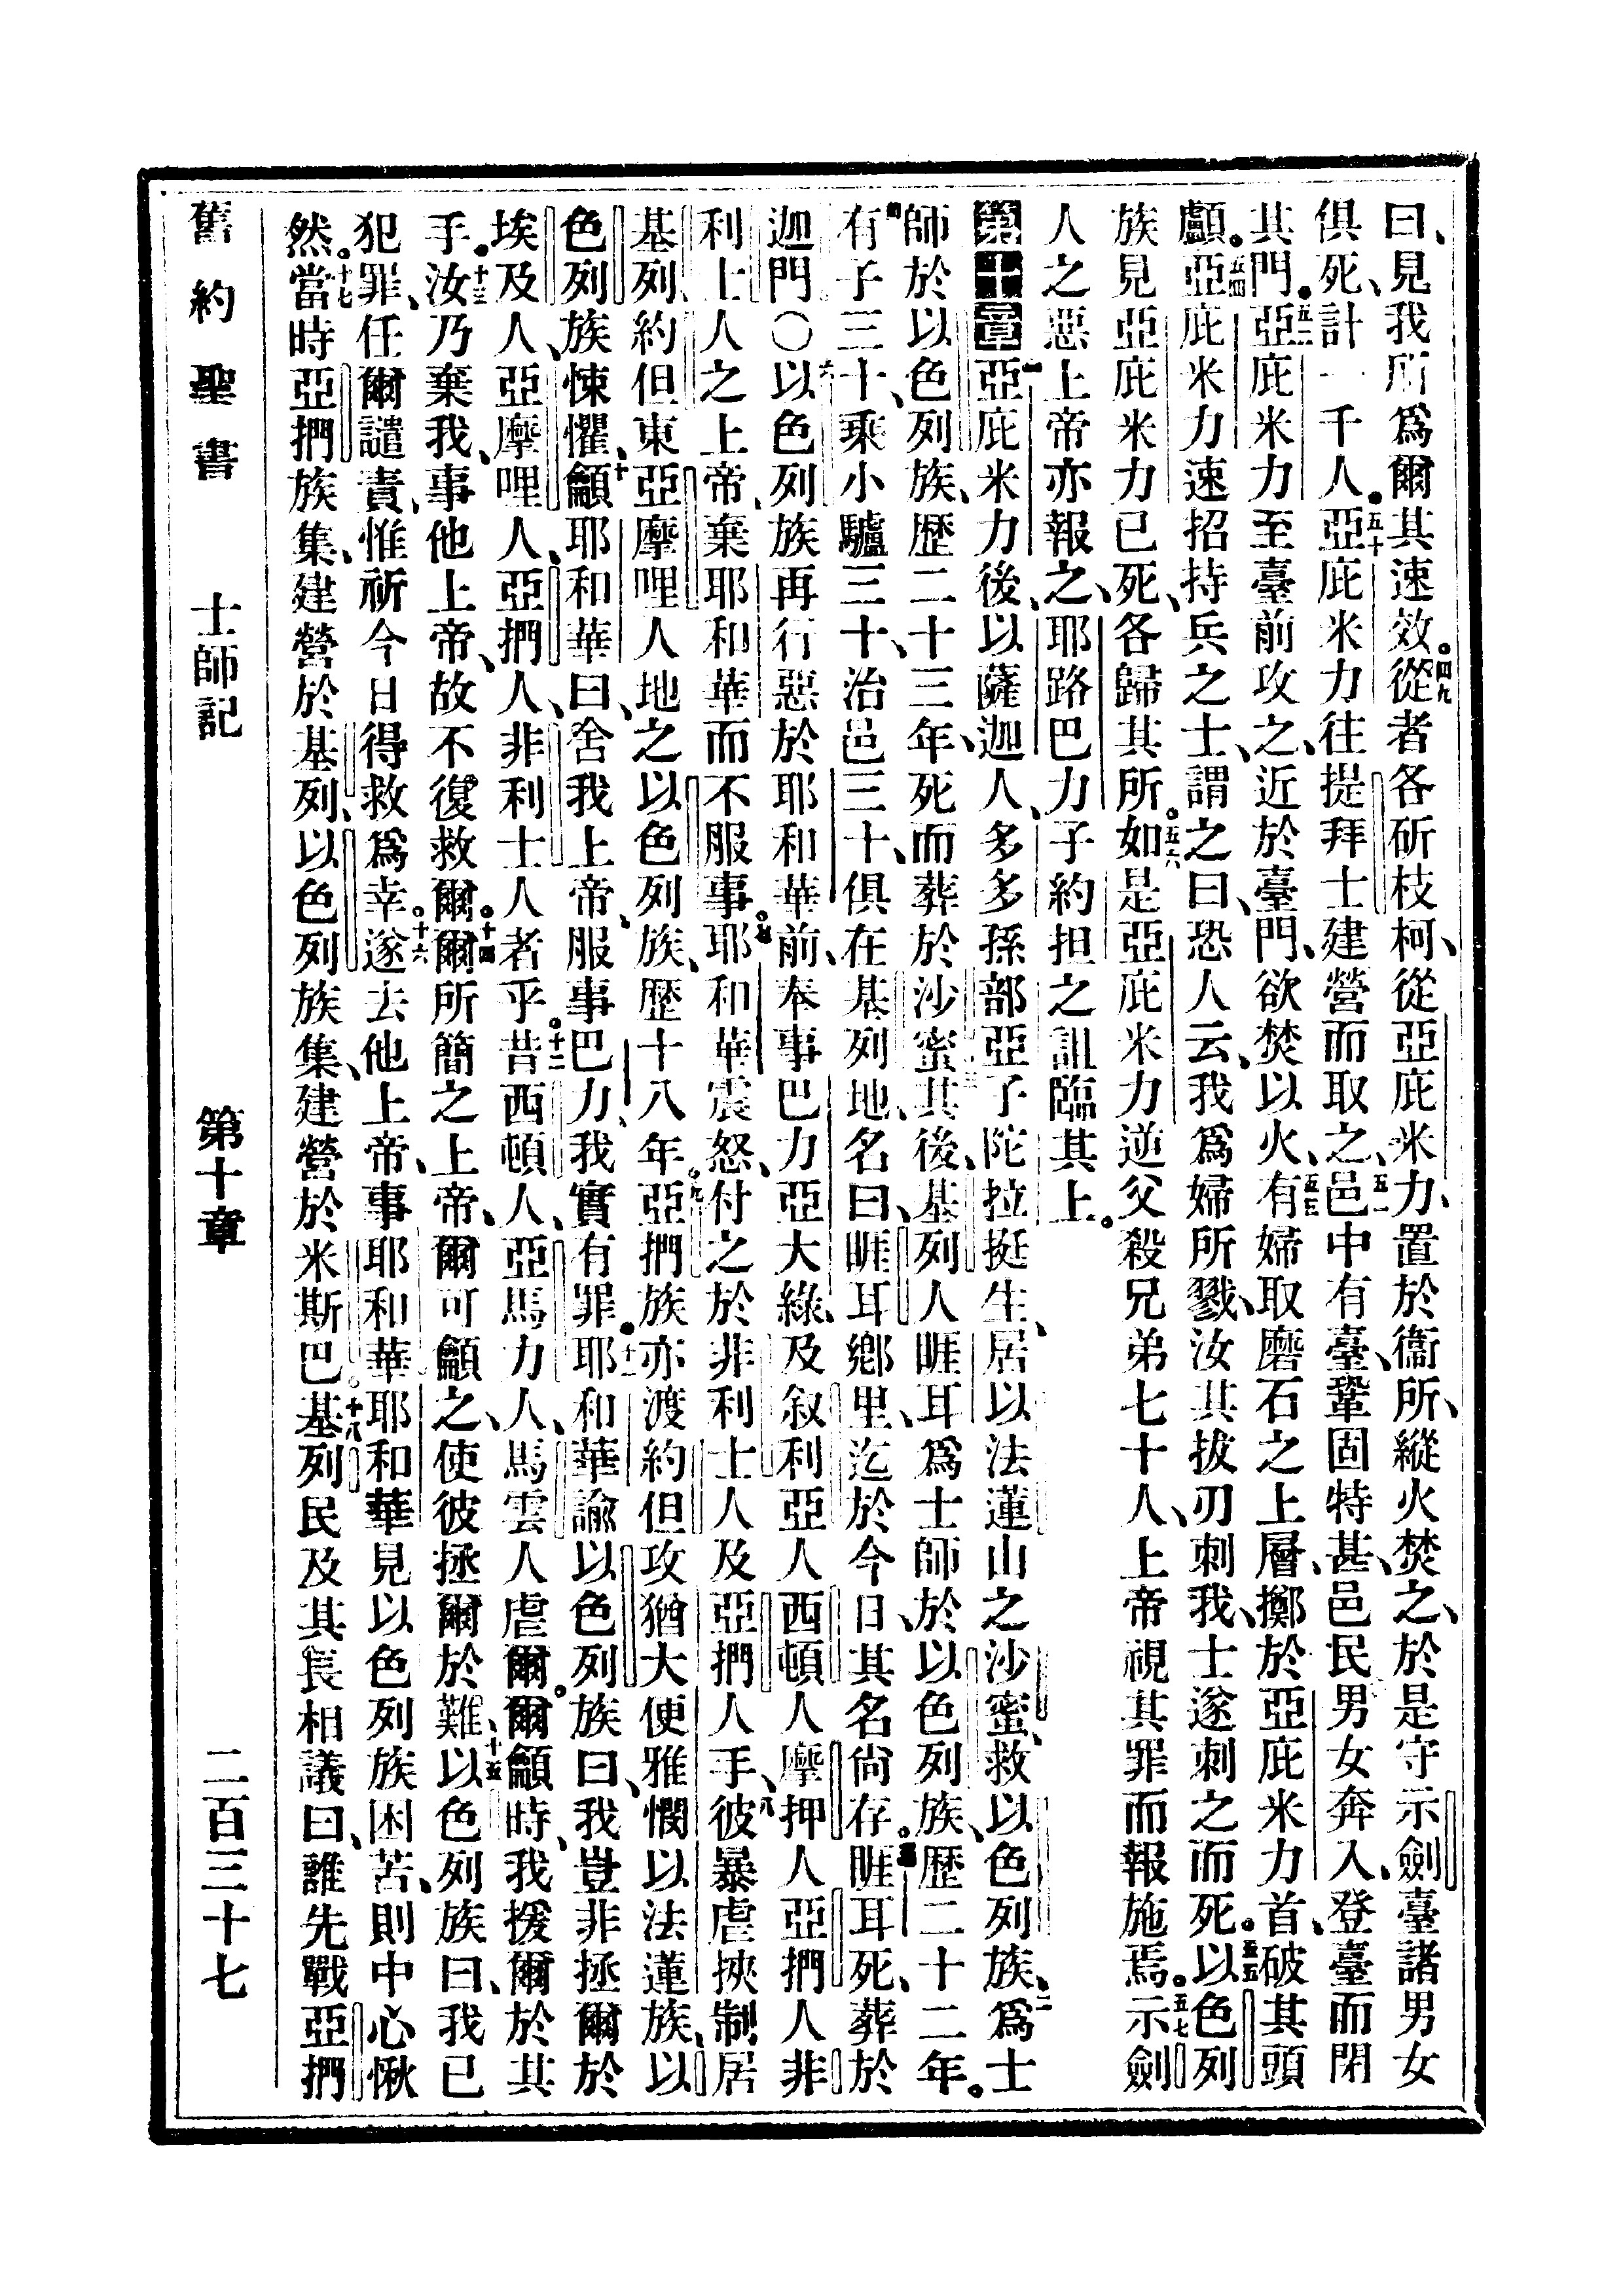 曰、見我所爲爾其速效。四九從者各斫枝柯、從亞庇米力、置於衞所、縱火焚之、於是守示劍臺諸男女
俱死、計一千人。五十亞庇米力往提拜士建營而取之、五一邑中有臺、鞏固特甚、邑民男女奔入、登臺而閉
其門。五二亞庇米力至臺前攻之、近於臺門、欲焚以火、五三有婦取磨石之上層、擲於亞庇米力首、破其頭
顱。五四亞庇米力速招持兵之士、謂之曰、恐人云、我爲婦所戮、汝其拔刃刺我、士遂刺之而死。五五以色列
族見亞庇米力已死、各歸其所。五六如是亞庇米力逆父殺兄弟七十人、上帝視其罪而報施焉。五七示劍
人之惡上帝亦報之、耶路巴力子約担之詛臨其上。
第十章一亞庇米力後、以薩迦人、多多孫部亞子陀拉挺生、居以法蓮山之沙蜜、救以色列族、二爲士
師於以色列族、歷二十三年、死而葬於沙蜜三其後、基列人睚耳爲士師於以色列族、歷二十二年。
四有子三十、乘小驢三十、治邑三十、俱在基列地、名曰、睚耳鄉里、迄於今日、其名尙存。五睚耳死、葬於
迦門〇六以色列族再行惡於耶和華前、奉事巴力亞大綠、及叙利亞人西頓人摩押人亞捫人非
利士人之上帝、棄耶和華而不服事。七耶和華震怒、付之於非利士人及亞捫人手、八彼暴虐挾制居
基列、約但東亞摩哩人地之以色列族、歷十八年。九亞捫族亦渡約但攻猶大便雅憫以法蓮族、以
色列族悚懼、十籲耶和華曰、舍我上帝、服事巴力、我實有罪。十一耶和華諭以色列族曰、我豈非拯爾於
埃及人、亞摩哩人、亞捫人、非利士人者乎。十二昔西頓人、亞馬力人、馬雲人虐爾。爾籲時、我援爾於其
手。十三汝乃棄我、事他上帝、故不復救爾。十四爾所簡之上帝、爾可籲之、使彼拯爾於難、十五以色列族曰、我已
犯罪、任爾譴責、惟祈今日得救爲幸。十六遂去他上帝、事耶和華耶和華見以色列族困苦、則中心愀
然。十七當時亞捫族集、建營於基列、以色列族集、建營於米斯巴。十八基列民及其長相議曰、誰先戰亞捫
舊約聖書　士師記　第十章　二百三十七